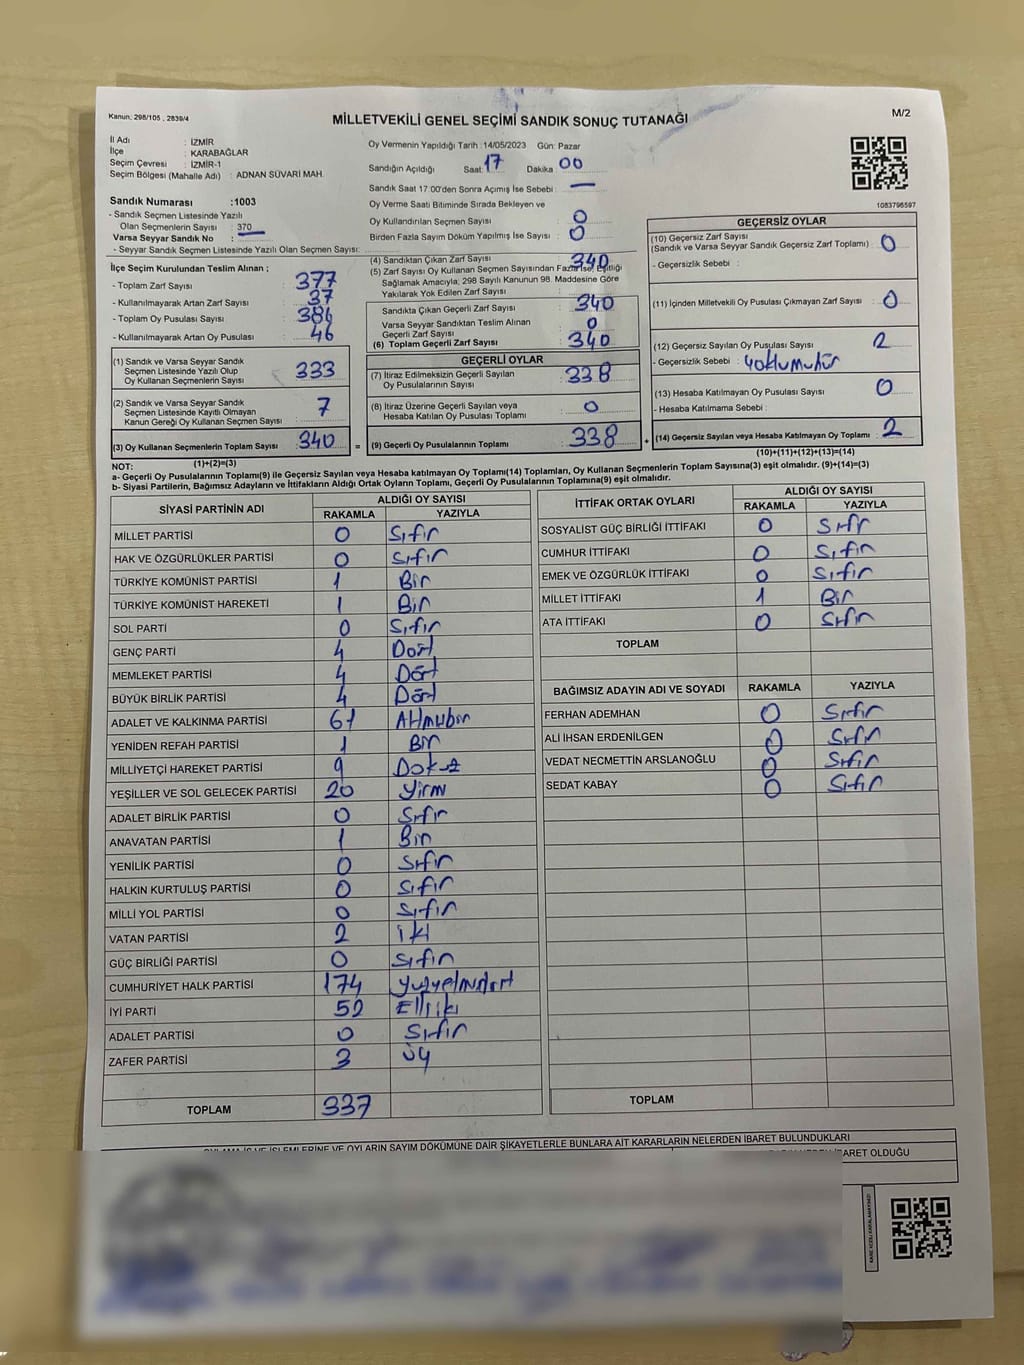 Kanun: 298/105 , 2839/4
M/2
MİLLETVEKİLİ GENEL SEÇİMİ SANDIK SONUÇ TUTANAĞI
İl Adı : İZMİR
İlçe : KARABAĞLAR
Seçim Çevresi : İZMİR-1
Seçim Bölgesi (Mahalle Adı) : ADNAN SÜVARİ MAH.
Oy Vermenin Yapıldığı Tarih :14/05/2023 Gün: Pazar
Sandığın Açıldığı Saat: 17 Dakika 00
Sandık Saat 17:00'den Sonra Açımış İse Sebebi : —
Oy Verme Saati Bitiminde Sırada Bekleyen ve
Oy Kullandırılan Seçmen Sayısı : 0
Birden Fazla Sayım Döküm Yapılmış İse Sayısı : 0
1083796597
Sandık Numarası :1003
- Sandık Seçmen Listesinde Yazılı
Olan Seçmenlerin Sayısı : 370
Varsa Seyyar Sandık No :
- Seyyar Sandık Seçmen Listesinde Yazılı Olan Seçmen Sayısı:
İlçe Seçim Kurulundan Teslim Alınan ;
- Toplam Zarf Sayısı : 377
- Kullanılmayarak Artan Zarf Sayısı : 37
- Toplam Oy Pusulası Sayısı : 386
- Kullanılmayarak Artan Oy Pusulası : 46
(1) Sandık ve Varsa Seyyar Sandık
Seçmen Listesinde Yazılı Olup
Oy Kullanan Seçmenlerin Sayısı : 333
(2) Sandık ve Varsa Seyyar Sandık
Seçmen Listesinde Kayıtlı Olmayan
Kanun Gereği Oy Kullanan Seçmen Sayısı : 7
(3) Oy Kullanan Seçmenlerin Toplam Sayısı : 340 =
(1)+(2)=(3)
(4) Sandıktan Çıkan Zarf Sayısı : 340
(5) Zarf Sayısı Oy Kullanan Seçmen Sayısından Fazla İse, Eşitliği
Sağlamak Amacıyla; 298 Sayılı Kanunun 98. Maddesine Göre
Yakılarak Yok Edilen Zarf Sayısı :
Sandıkta Çıkan Geçerli Zarf Sayısı : 340
Varsa Seyyar Sandıktan Teslim Alınan
Geçerli Zarf Sayısı : 0
(6) Toplam Geçerli Zarf Sayısı : 340
GEÇERLİ OYLAR
(7) İtiraz Edilmeksizin Geçerli Sayılan
Oy Pusulalarının Sayısı : 338
(8) İtiraz Üzerine Geçerli Sayılan veya
Hesaba Katılan Oy Pusulası Toplamı : 0
(9) Geçerli Oy Pusulalarının Toplamı : 338 +
GEÇERSİZ OYLAR
(10) Geçersiz Zarf Sayısı
(Sandık ve Varsa Seyyar Sandık Geçersiz Zarf Toplamı) : 0
- Geçersizlik Sebebi :
(11) İçinden Milletvekili Oy Pusulası Çıkmayan Zarf Sayısı : 0
(12) Geçersiz Sayılan Oy Pusulası Sayısı : 2
- Geçersizlik Sebebi :
(13) Hesaba Katılmayan Oy Pusulası Sayısı : 0
- Hesaba Katılmama Sebebi :
(14) Geçersiz Sayılan veya Hesaba Katılmayan Oy Toplamı : 2
(10)+(11)+(12)+(13)=(14)
NOT:
a- Geçerli Oy Pusulalarının Toplamı(9) ile Geçersiz Sayılan veya Hesaba katılmayan Oy Toplamı(14) Toplamları, Oy Kullanan Seçmenlerin Toplam Sayısına(3) eşit olmalıdır. (9)+(14)=(3)
b- Siyasi Partilerin, Bağımsız Adayların ve İttifakların Aldığı Ortak Oyların Toplamı, Geçerli Oy Pusulalarının Toplamına(9) eşit olmalıdır.
SİYASİ PARTİNİN ADI ALDIĞI OY SAYISI
RAKAMLA YAZIYLA
MİLLET PARTİSİ 0 Sıfır
HAK VE ÖZGÜRLÜKLER PARTİSİ 0 Sıfır
TÜRKİYE KOMÜNİST PARTİSİ 1 Bir
TÜRKİYE KOMÜNİST HAREKETİ 1 Bir
SOL PARTİ 0 Sıfır
GENÇ PARTİ 4 Dört
MEMLEKET PARTİSİ 4 Dört
BÜYÜK BİRLİK PARTİSİ 4 Dört
ADALET VE KALKINMA PARTİSİ 61 Altmışbir
YENİDEN REFAH PARTİSİ 1 Bir
MİLLİYETÇİ HAREKET PARTİSİ 9 Dokuz
YEŞİLLER VE SOL GELECEK PARTİSİ 20 Yirmi
ADALET BİRLİK PARTİSİ 0 Sıfır
ANAVATAN PARTİSİ 1 Bir
YENİLİK PARTİSİ 0 Sıfır
HALKIN KURTULUŞ PARTİSİ 0 Sıfır
MİLLİ YOL PARTİSİ 0 Sıfır
VATAN PARTİSİ 2 iki
GÜÇ BİRLİĞİ PARTİSİ 0 Sıfır
CUMHURİYET HALK PARTİSİ 174 Yüzyetmişdört
İYİ PARTİ 52 Elliiki
ADALET PARTİSİ 0 Sıfır
ZAFER PARTİSİ 3 üç
TOPLAM 337
İTTİFAK ORTAK OYLARI ALDIĞI OY SAYISI
RAKAMLA YAZIYLA
SOSYALİST GÜÇ BİRLİĞİ İTTİFAKI 0 Sıfır
CUMHUR İTTİFAKI 0 Sıfır
EMEK VE ÖZGÜRLÜK İTTİFAKI 0 Sıfır
MİLLET İTTİFAKI 1 Bir
ATA İTTİFAKI 0 Sıfır
TOPLAM
BAĞIMSIZ ADAYIN ADI VE SOYADI RAKAMLA YAZIYLA
FERHAN ADEMHAN 0 Sıfır
ALİ İHSAN ERDENİLGEN 0 Sıfır
VEDAT NECMETTİN ARSLANOĞLU 0 Sıfır
SEDAT KABAY 0 Sıfır
TOPLAM
OYLAMA İŞ VE İŞLEMLERİNE VE OYLARIN SAYIM DÖKÜMÜNE DAİR ŞİKAYETLERLE BUNLARA AİT KARARLARIN NELERDEN İBARET BULUNDUKLARI
İBARET OLDUĞU